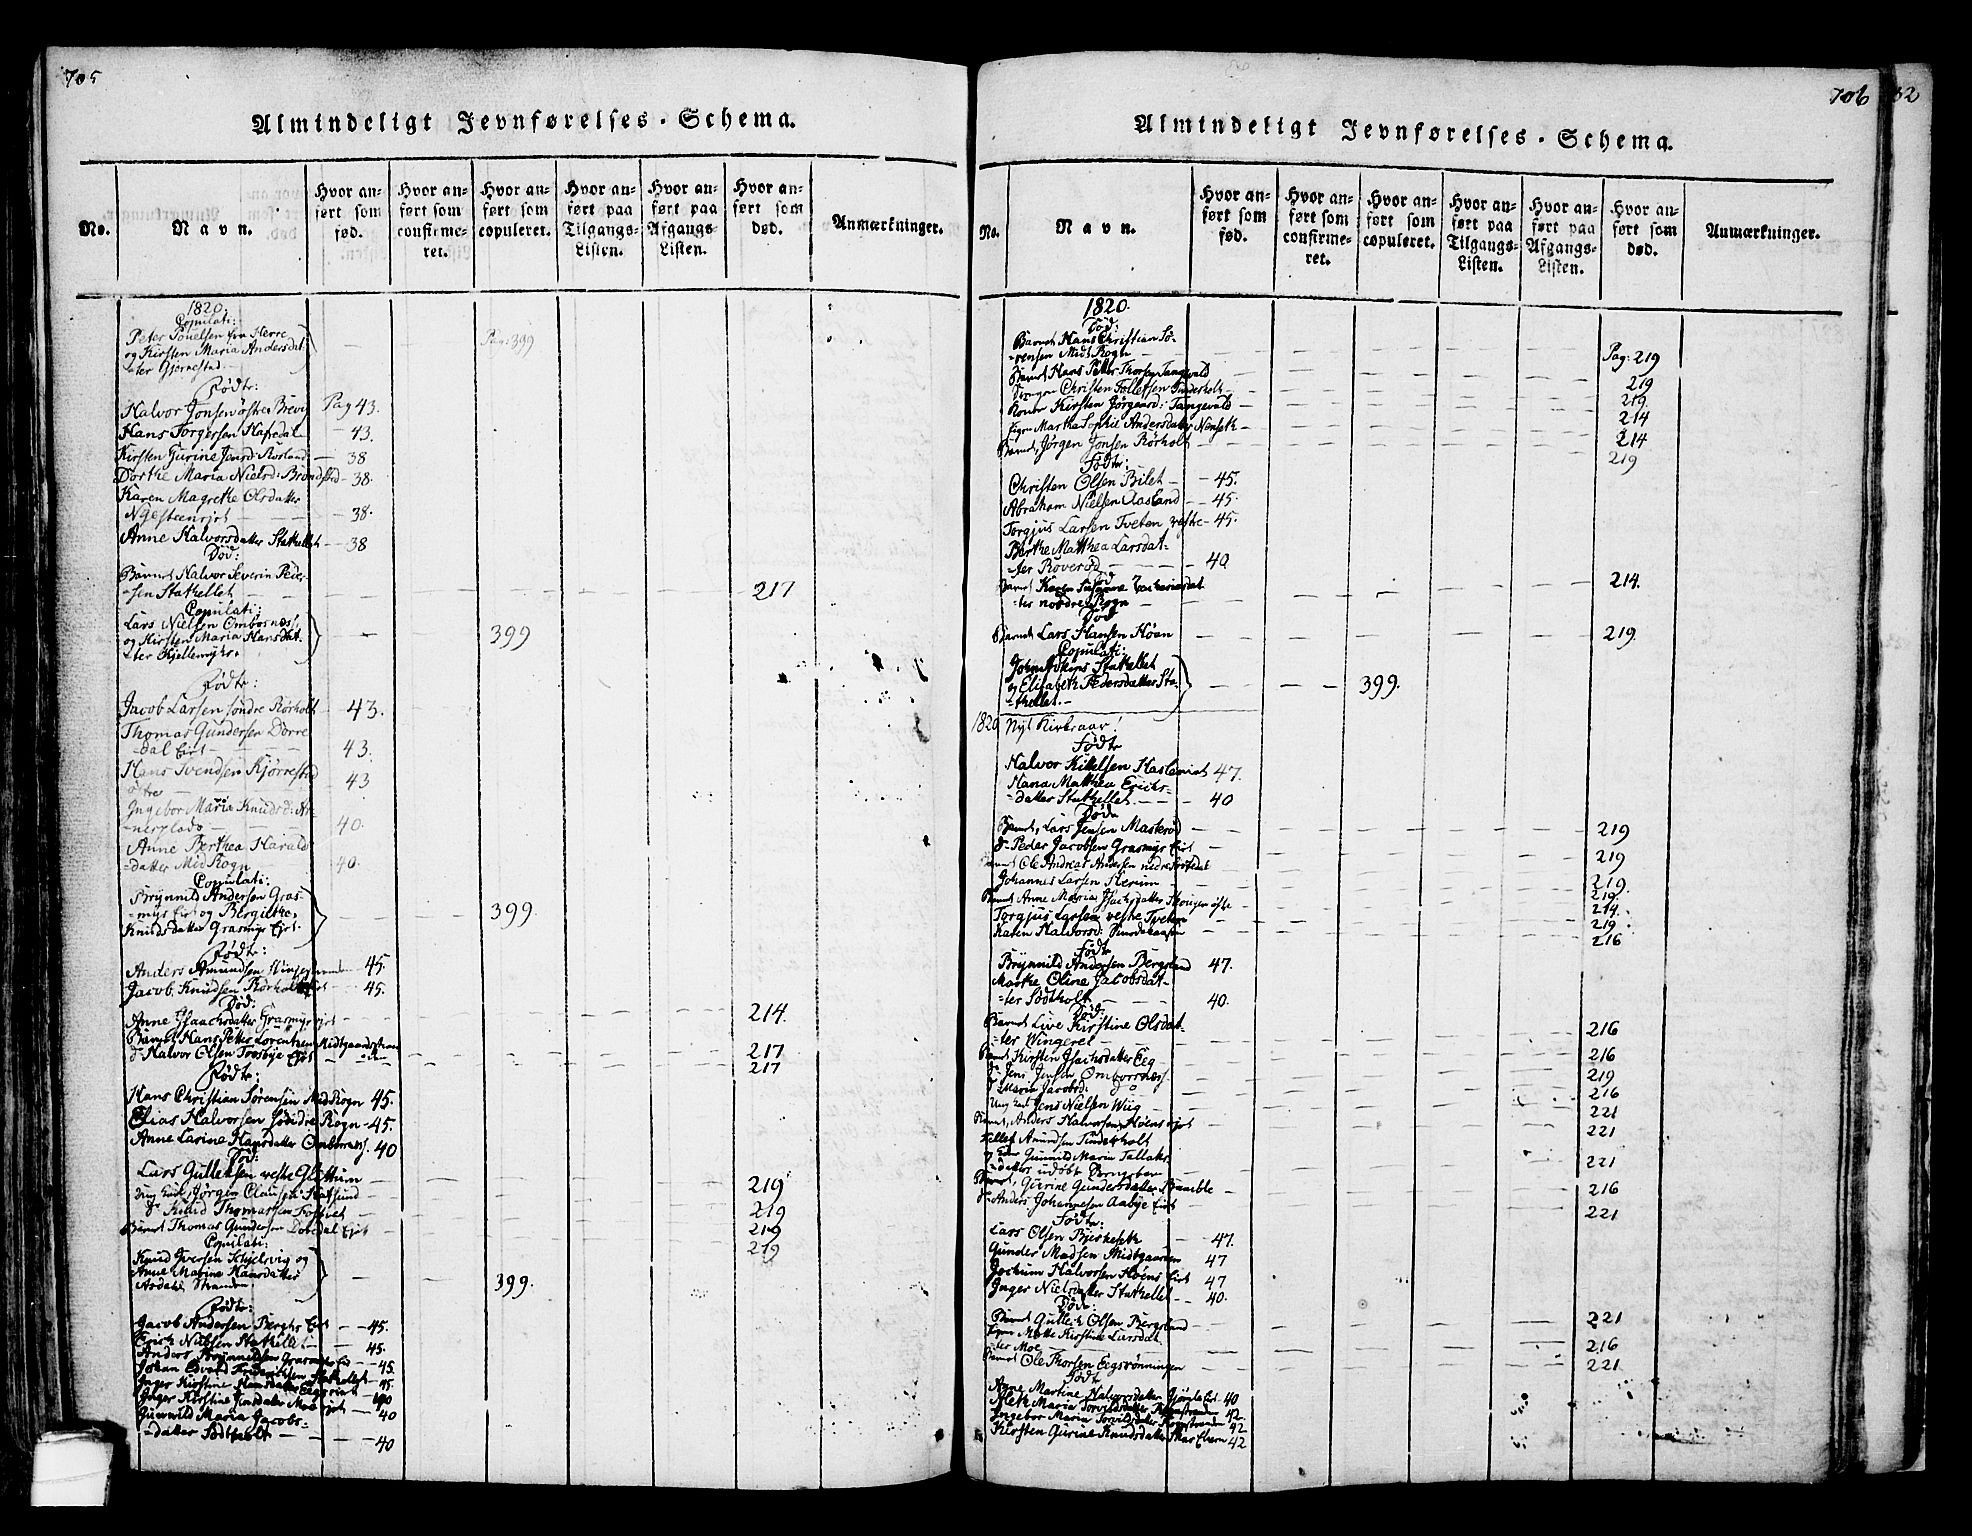 705
Almindeligt Jevnførelses-Schema.
No.
Navn.
Hvor anført som fød.
Hvor anført som confirmeret.
Hvor anført som copuleret.
Hvor anført paa Tilgangs-Listen.
Hvor anført paa Afgangs-Listen.
Hvor anført som død.
Anmærkninger.
1820
Copulati:
Peter Pouelsen fra Herre
og Kirsten Maria Andersdat- Pag: 399
ter Gjernestad
Fødte:
Halvor Jonsen østre Brevig Pag 43.
Hans Torgersen Hafredal — 43.
Kirsten Gurine — 38
Dorthe Maria Nielsd: — 38.
Karen Magrethe Olsdatter
— 38.
Anne Halvorsdatter Stathellet — 38
Død:
Barnet Halvor Severin Peder-
sen Stathellet 217
Copulati:
Lars Nielsen Ombornæss,
og Kirsten Maria Hansdat- 399
ter Kjellemyhr.
Fødte:
Jacob Larsen søndre Rørholt — 43.
Thomas Gundersen Dørre-
dal Eiet — 43.
Hans Svendsen Kjørrestad
østre — 43
Ingebor Maria Knudsd:
— 40.
Anne Berthea Harald-
datter Mid Rogn 40.
Copulati:
Brynnild Andersen Gras-
myr Eiet og Bergitthe 399
Knudsdatter Grasmyr Eiet.
Fødte:
Anders Amundsen 45.
Jacob Knudsen Rørholt — 45.
Død:
Anne Isaachsdatter Grasmyr eiet 214.
Barnet Hans Petter Lorentzen Midtgaardstrand 217
do Halvor Olsen Trosbye Eiet 217
Fødte:
Hans Christian Sørensen Mid Rogn 45.
Elias Halvorsen søndre Rogn — 45.
Anne Larine Hansdatter Ombornæs. 40
Død:
Lars Gullehsen vestre Glittum 219
Ung Karl Jørgen Clausen 219
do Knud Thomassen 219
Barnet Thomas Gundersen Dørredal Eiet 219
Copulati:
Knud Iversen Kjelsvig og
Anne Marine Hansdatter 399.
Aasdahl Stranden
Fødte:
Jacob Andersen Berghs Eiet — 45.
Erich Nielsen Stathellet — 45.
Anders Brynnildsen Grasmyr Eie — 45.
Johan Edvard Frederichsen Stathellet 45.
Inger Kirstine Hansdatter
Inger Kirstine Jensdatter Moe Eiet — 40
Gunnild Maria Jacobs-
datter Sødtholt — 40
706
32
Almindeligt Jevnførelses-Schema.
No.
Navn.
Hvor anført som fød.
Hvor anført som confirmeret.
Hvor anført som copuleret.
Hvor anført paa Tilgangs-Listen.
Hvor anført paa Afgangs-Listen.
Hvor anført som død.
Anmærkninger.
1820.
Død:
Barnet Hans Christian Sø-
rensen Midt Rogn Pag: 219
Barnet Hans Peter Thorsen Tangevald 219
Drengen Christen Tollefsen Finderholt 219.
Konen Kirsten Jørgensd: Tangevald 214
Pigen Martha Sophie Andersdatter Nenseth 214
Barnet Jørgen Jonsen Rørholt 219
Fødte:
Christen Olsen Bilet — 45.
Abraham Nielsen Aasland — 45.
Torgjus Larsen Tveten vestre — 45.
Berthe Matthea Larsdat-
ter Røverød — 40
Død
Barnet Karen Susanne Zachariasdat-
ter nordre Rogn 214.
Død
Barnet Lars Hansen Høen 219.
Copulati:
John Askins Stathellet
og Elisabeth Pedersdatter Sta- 399.
thellet.
1820 Nyt Kirkeaar!
Fødte
Halvor Kittelsen Haslariet 47.
Hana Matthea Erichs-
datter Stathellet — 40
Død
Barnet, Lars Jensen Masterød 219
do Peder Jacobsen Grasmyr Eiet 219
Barnet Ole Andreas Andersen nedre 219.
Johannes Larsen Skeruen 219.
Barnet Anne Maria Isachsdatter Skougen øste 214.
Torgjus Larsen vestre Tveten 219.
Karen Halvorsd: 216
Fødte
Brynnild Andersen Bergsland 47.
Marthe Oline Jacobsdat-
ter Sødtholt 40.
Død:
Barnet Live Kirstine Olsdat-
ter Wingeret 216
Barnet Kirsten Isachsdatter Eeg 216
do Jens Jensen Ombornæss 219
do Maria Jacobsd: do 216
Ung karl Jens Nielsen Wiig 221
Barnet, Anders Halvorsen Høens eiet 221
Tellef Amundsen Finderholt
og Gunnild Maria Tallaks-
datter udøbt 221
Barnet, Gurine Gundersdatter Bamble 216
do Anders Johannesen Aabye Eiet 221
Fødte:
Lars Olsen Bjerkeseth — 47.
Gunder Madsen Midtgaarden 47
Jochum Halvorsen Høens Eiet 47
Inger Nielsdatter Stathellet — 40.
Død:
Barnet Gullech Olsen Bergsland 221
Pigen Mette Kirstine Larsdat-
ter Moe 216
Barnet Ole Thorsen Eegsrønningen 221
Født
Anne Martine Halvorsdatter Gjømle Eiet 40
Aleth Maria Torvildsdatter Rognstranden 42.
Ingebor Maria Torvildsdatter Rognstranden 42
Kirsten Gurine Knudsdatter Skar Elven 42